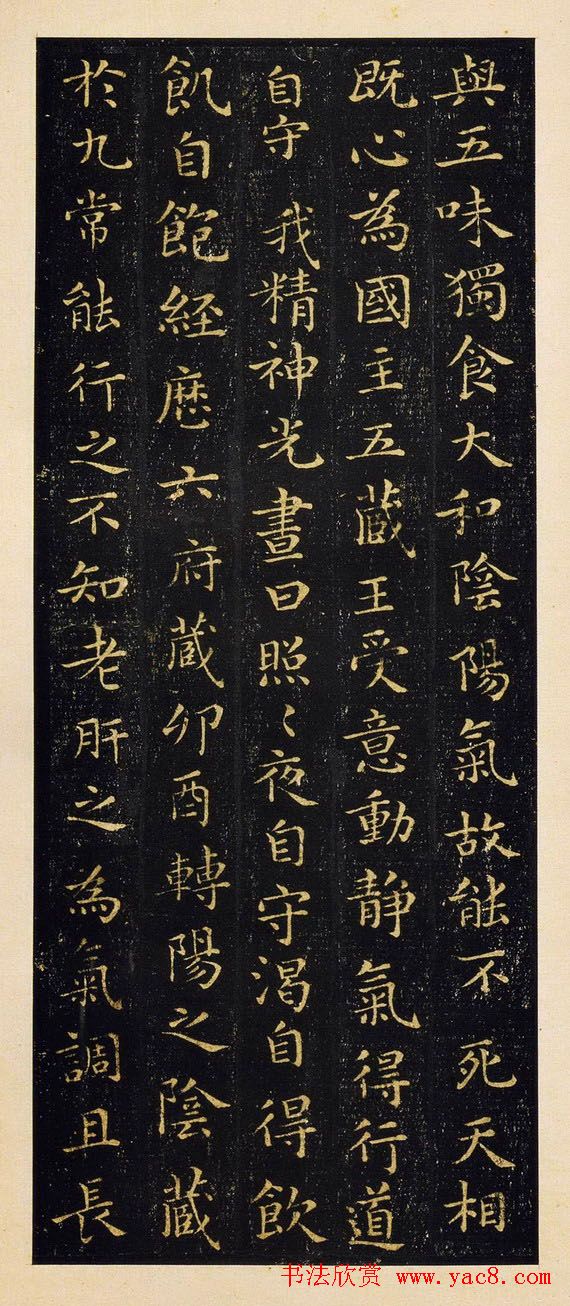 與五味獨食大和陰陽氣故能不死天相
既心為國主五藏王受意動靜氣得行道
自守我精神光晝日照〻夜自守渴自得飲
飢自飽經歷六府藏卯酉轉陽之陰藏
於九常能行之不知老肝之為氣調且長
书法欣赏 www.yac8.com